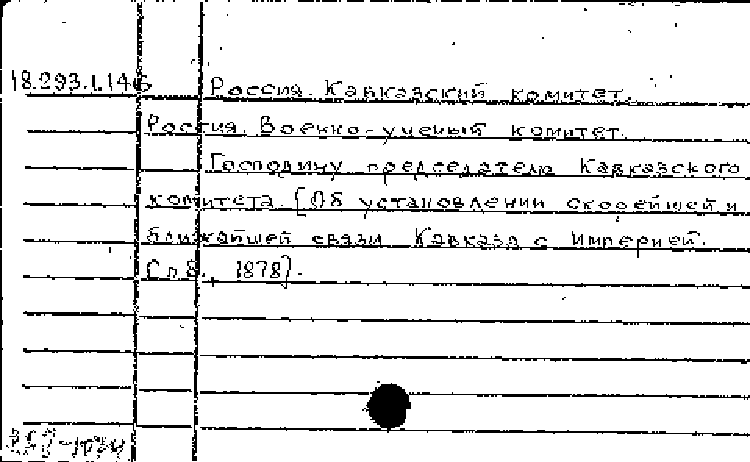 18.293.1.146 Россия. Кавказский комитет.
Россия. Военно-ученый комитет.
Господину председателю Кавказского
комитета. [Об установлении скорейшей и
ближайшей связи Кавказа с Империей.
Спб., 1878].